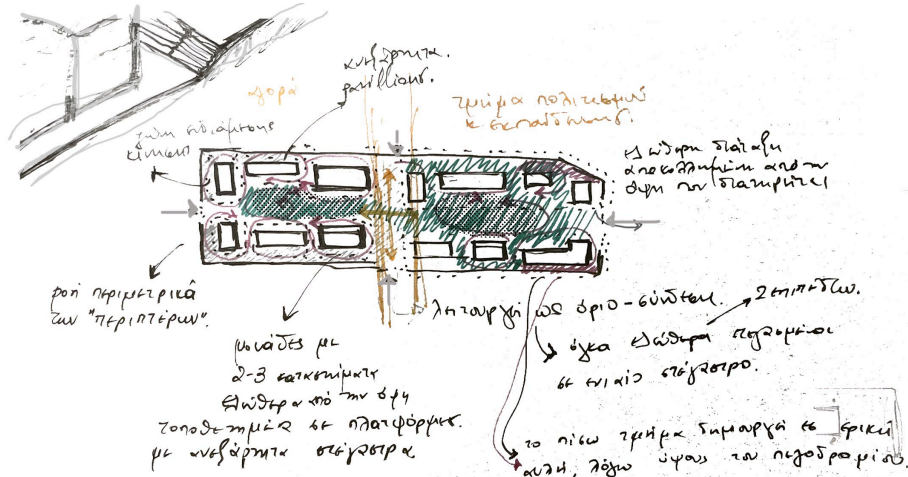 ανεξάρτητα
pavillions.
αγορά
τμήμα πολιτισμού
κ εκπαίδευσης.
ζώνη ενδιάμεσης
κίνησης
ελεύθερη διάταξη
αποκολλημένη από την
όψη που διατηρείται
ροή περιμετρικά
των "περιπτέρων".
λειτουργεί ως όριο-σύνδεση.
2 επιπέδων.
όγκοι ελεύθεροι
σε ενιαίο στέγαστρο.
μονάδες με
2-3 καταστήματα
ελεύθερα από την όψη
τοποθετημένα σε πλατφόρμες
με ανεξάρτητα στέγαστρα
το πίσω τμήμα δημιουργεί
αυλή, λόγω ύψους του πεζοδρομίου.